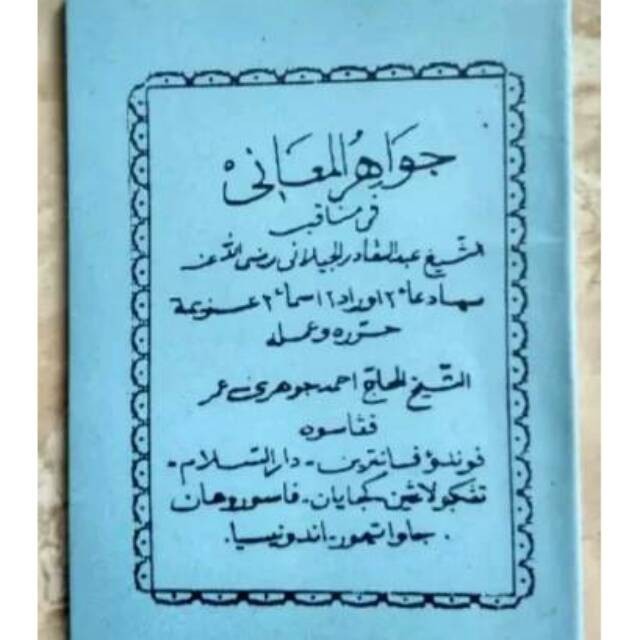 جَوَاهِرُ الْمَعَانِىْ
فى مناقب
الشّيخ عبد القادر الجيلانى رضى الله عنه
سهادعاء٢ اوراد٢ اسماء٢ عزيمة
حرّره وعمله
الشّيخ الحاج احمد جوهرى عمر
فڠاسوه
فوندؤ فسانترين - دار السّلام -
تڠڮولاڠين كجايان - فاسوروهان
جاوا تيمور - اندونيسيا.